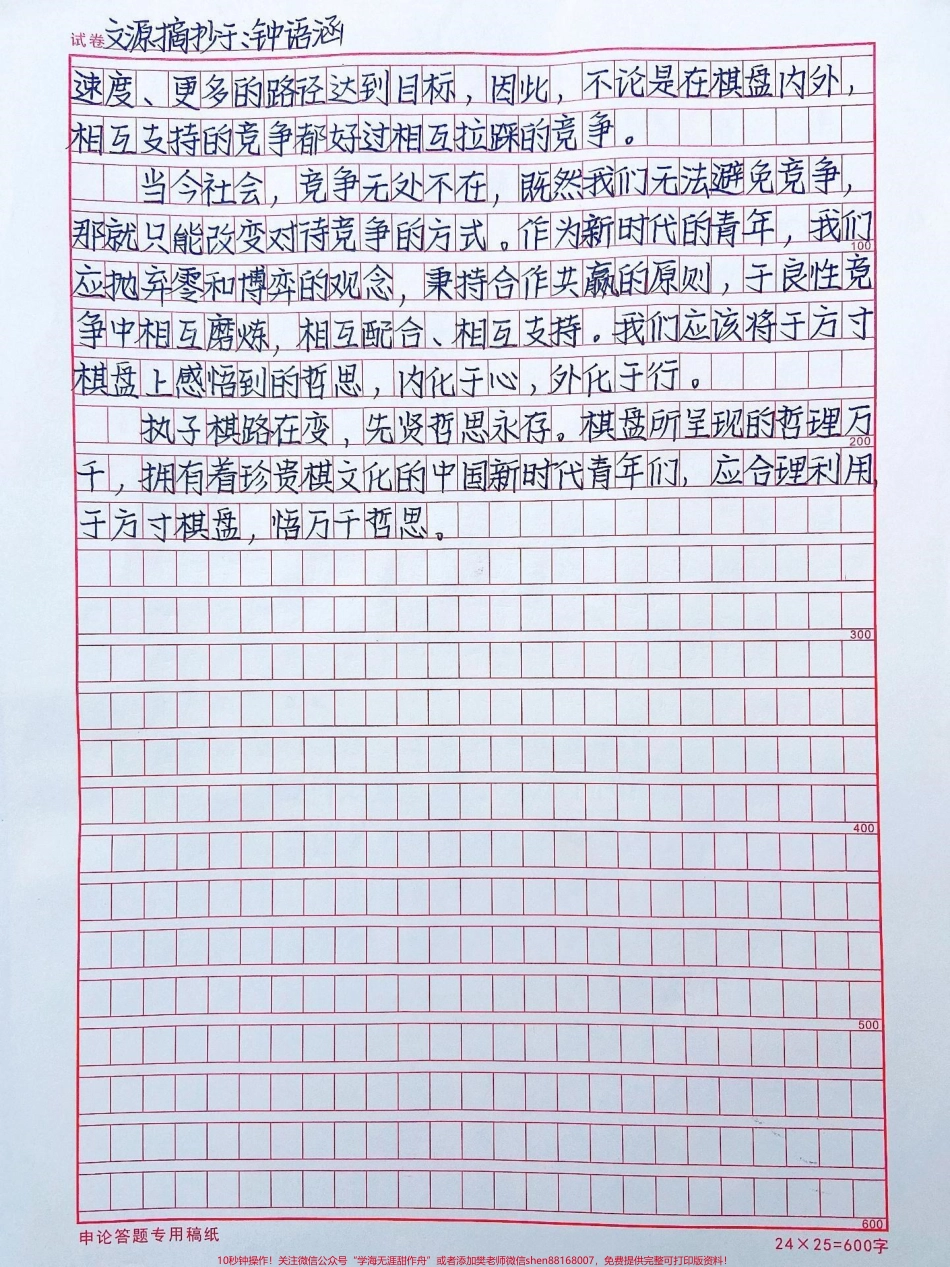 试卷 文源摘抄于:钟语涵
速度、更多的路径达到目标,因此,不论是在棋盘内外,
相互支持的竞争都好过相互拉踩的竞争。
当今社会,竞争无处不在,既然我们无法避免竞争,
那就只能改变对待竞争的方式。作为新时代的青年,我们
100
应抛弃零和博弈的观念,秉持合作共赢的原则,于良性竞
争中相互磨炼,相互配合、相互支持。我们应该将于方寸
棋盘上感悟到的哲思,内化于心,外化于行。
执子棋路在变,先贤哲思永存。棋盘所呈现的哲理万
200
千,拥有着珍贵棋文化的中国新时代青年们,应合理利用,
于方寸棋盘,悟万千哲思。
300
400
500
600
申论答题专用稿纸
24×25=600字
10秒钟操作!关注微信公众号“学海无涯甜作舟”或者添加樊老师微信shen88168007,免费提供完整可打印版资料!